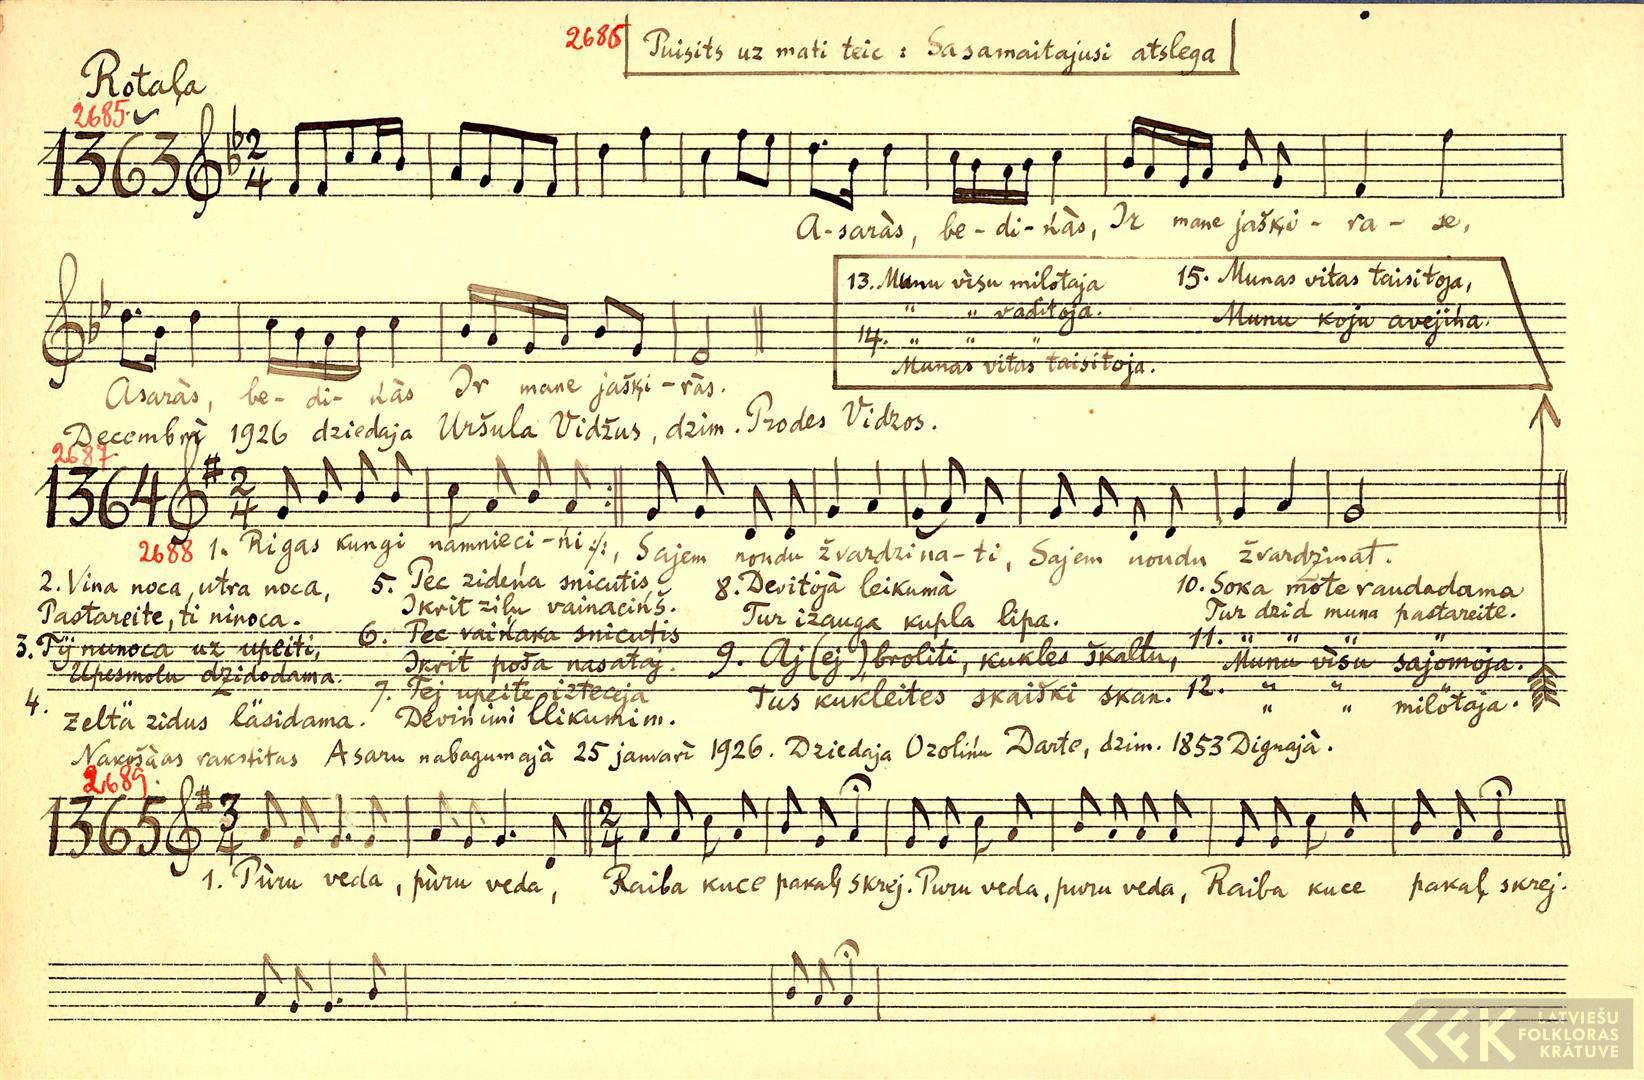 2686 Puisits uz mati teic : Sasamaitajusi atslega
Rotaļa
2685.
1363
2
4
A-saràs, be-di-ńàs, Ir mane jašķi-ra-se,
13. Munu vìsu milotaja
" " vaditoja.
14. " " "
Munas vitas taisitoja.
15. Munas vitas taisitoja,
Munu koju avejińa.
Asaràs, be-di-ńàs Ir mane jašķi-ràs.
Decembrì 1926 dziedaja Uršula Vidžus, dzim. Prodes Vidzos.
2687
1364
2
4
2688 1. Rigas kungi namnieci-ńi :/:, Sajem noudu žvardzina-ti, Sajem noudu žvardzinat.
2. Vina noca, utra noca,
Pastareite, ti ninoca.
3. Tij nunoca uz upeiti,
Upesmolu dzidodama.
4.
Zeltä zidus läsidama.
5. Pec zideńa snicutis
Ikrit zilu vainacińš.
6. Pec vaińaka snicutis
Ikrit poša nasataj.
7. Tej upeite izteceja
Devińimi llikumim.
8. Devitojà leikumà
Tur izauga kupla lipa.
9. Aj (ej), broliti, kukles škaltu,
Tus kukleites skaiški skan.
10. Soka mote raudadama
Tur dzid muna pastareite.
11. " " " "
Munu vìsu sajomoja.
12. " " milötaja.
rakstitas Asaru nabagumajà 25 janvarì 1926. Dziedaja Ozolińu Darte, dzim. 1853 Dignajà.
2689.
1365
3
4
2
4
1. Pùru veda, pùru veda, Raiba kuce pakaļ skrej. Puru veda, puru veda, Raiba kuce pakaļ skrej.
LFK LATVIEŠU
FOLKLORAS
KRĀTUVE